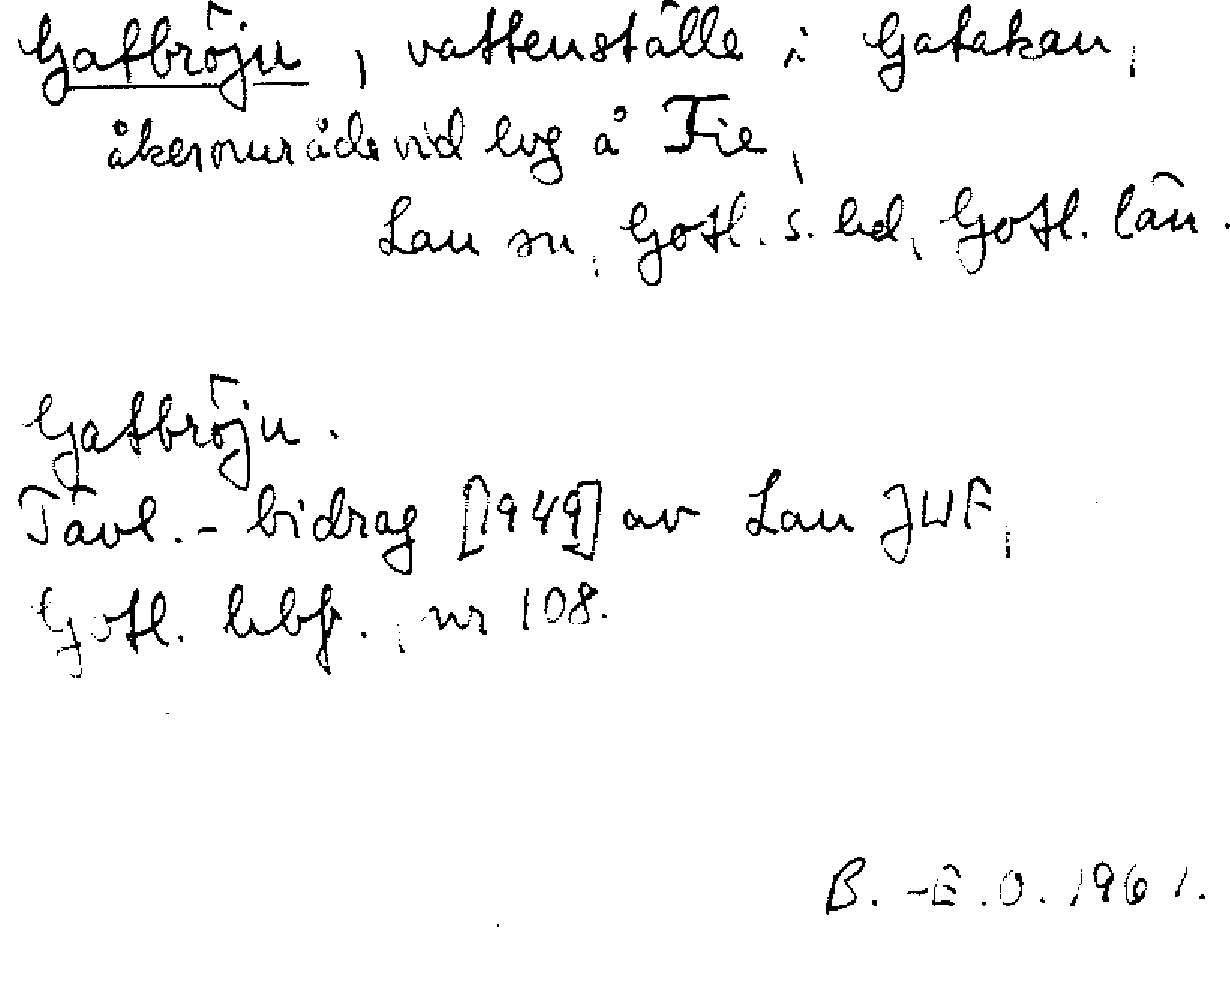 Gatbröju, vattenställe i Gatakau,
åkerområde vid hvg å Fie,
Lau sn, Gotl. s. hd, Gotl. län.
Gatbröju.
Tävl.-bidrag [1949] av Lau JUF,
Gotl. hbf., nr 108.
B.-E.O. 1961.